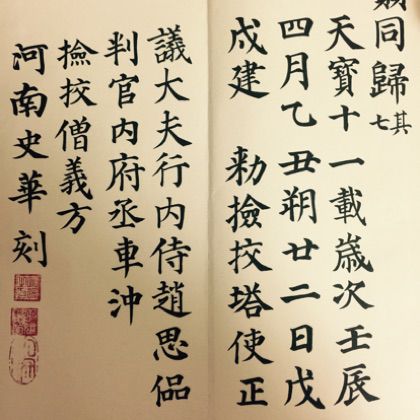 同歸其七
天寶十一載歲次壬辰
四月乙丑朔廿二日戊
戌建 勅撿挍塔使正
議大夫行内侍趙思偘
判官内府丞車沖
撿挍僧義方
河南史華刻